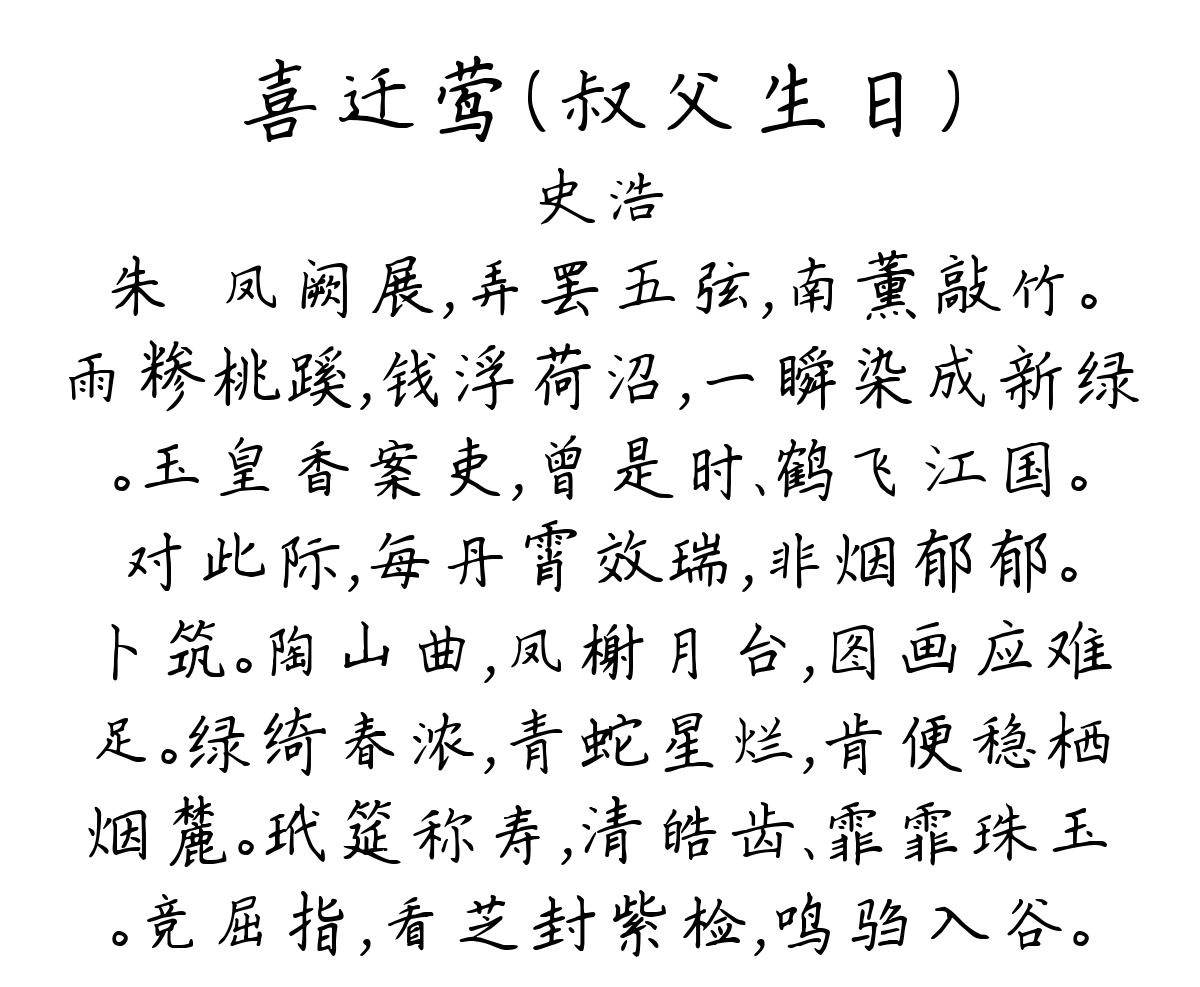 喜迁莺(叔父生日)
史浩
朱 凤阙展,弄罢五弦,南薰敲竹。
雨糁桃蹊,钱浮荷沼,一瞬染成新绿
。玉皇香案吏,曾是时、鹤飞江国。
对此际,每丹霄效瑞,非烟郁郁。
卜筑。陶山曲,凤榭月台,图画应难
足。绿绮春浓,青蛇星烂,肯便稳栖
烟麓。玳筵称寿,清皓齿、霏霏珠玉
。竞屈指,看芝封紫检,鸣驺入谷。